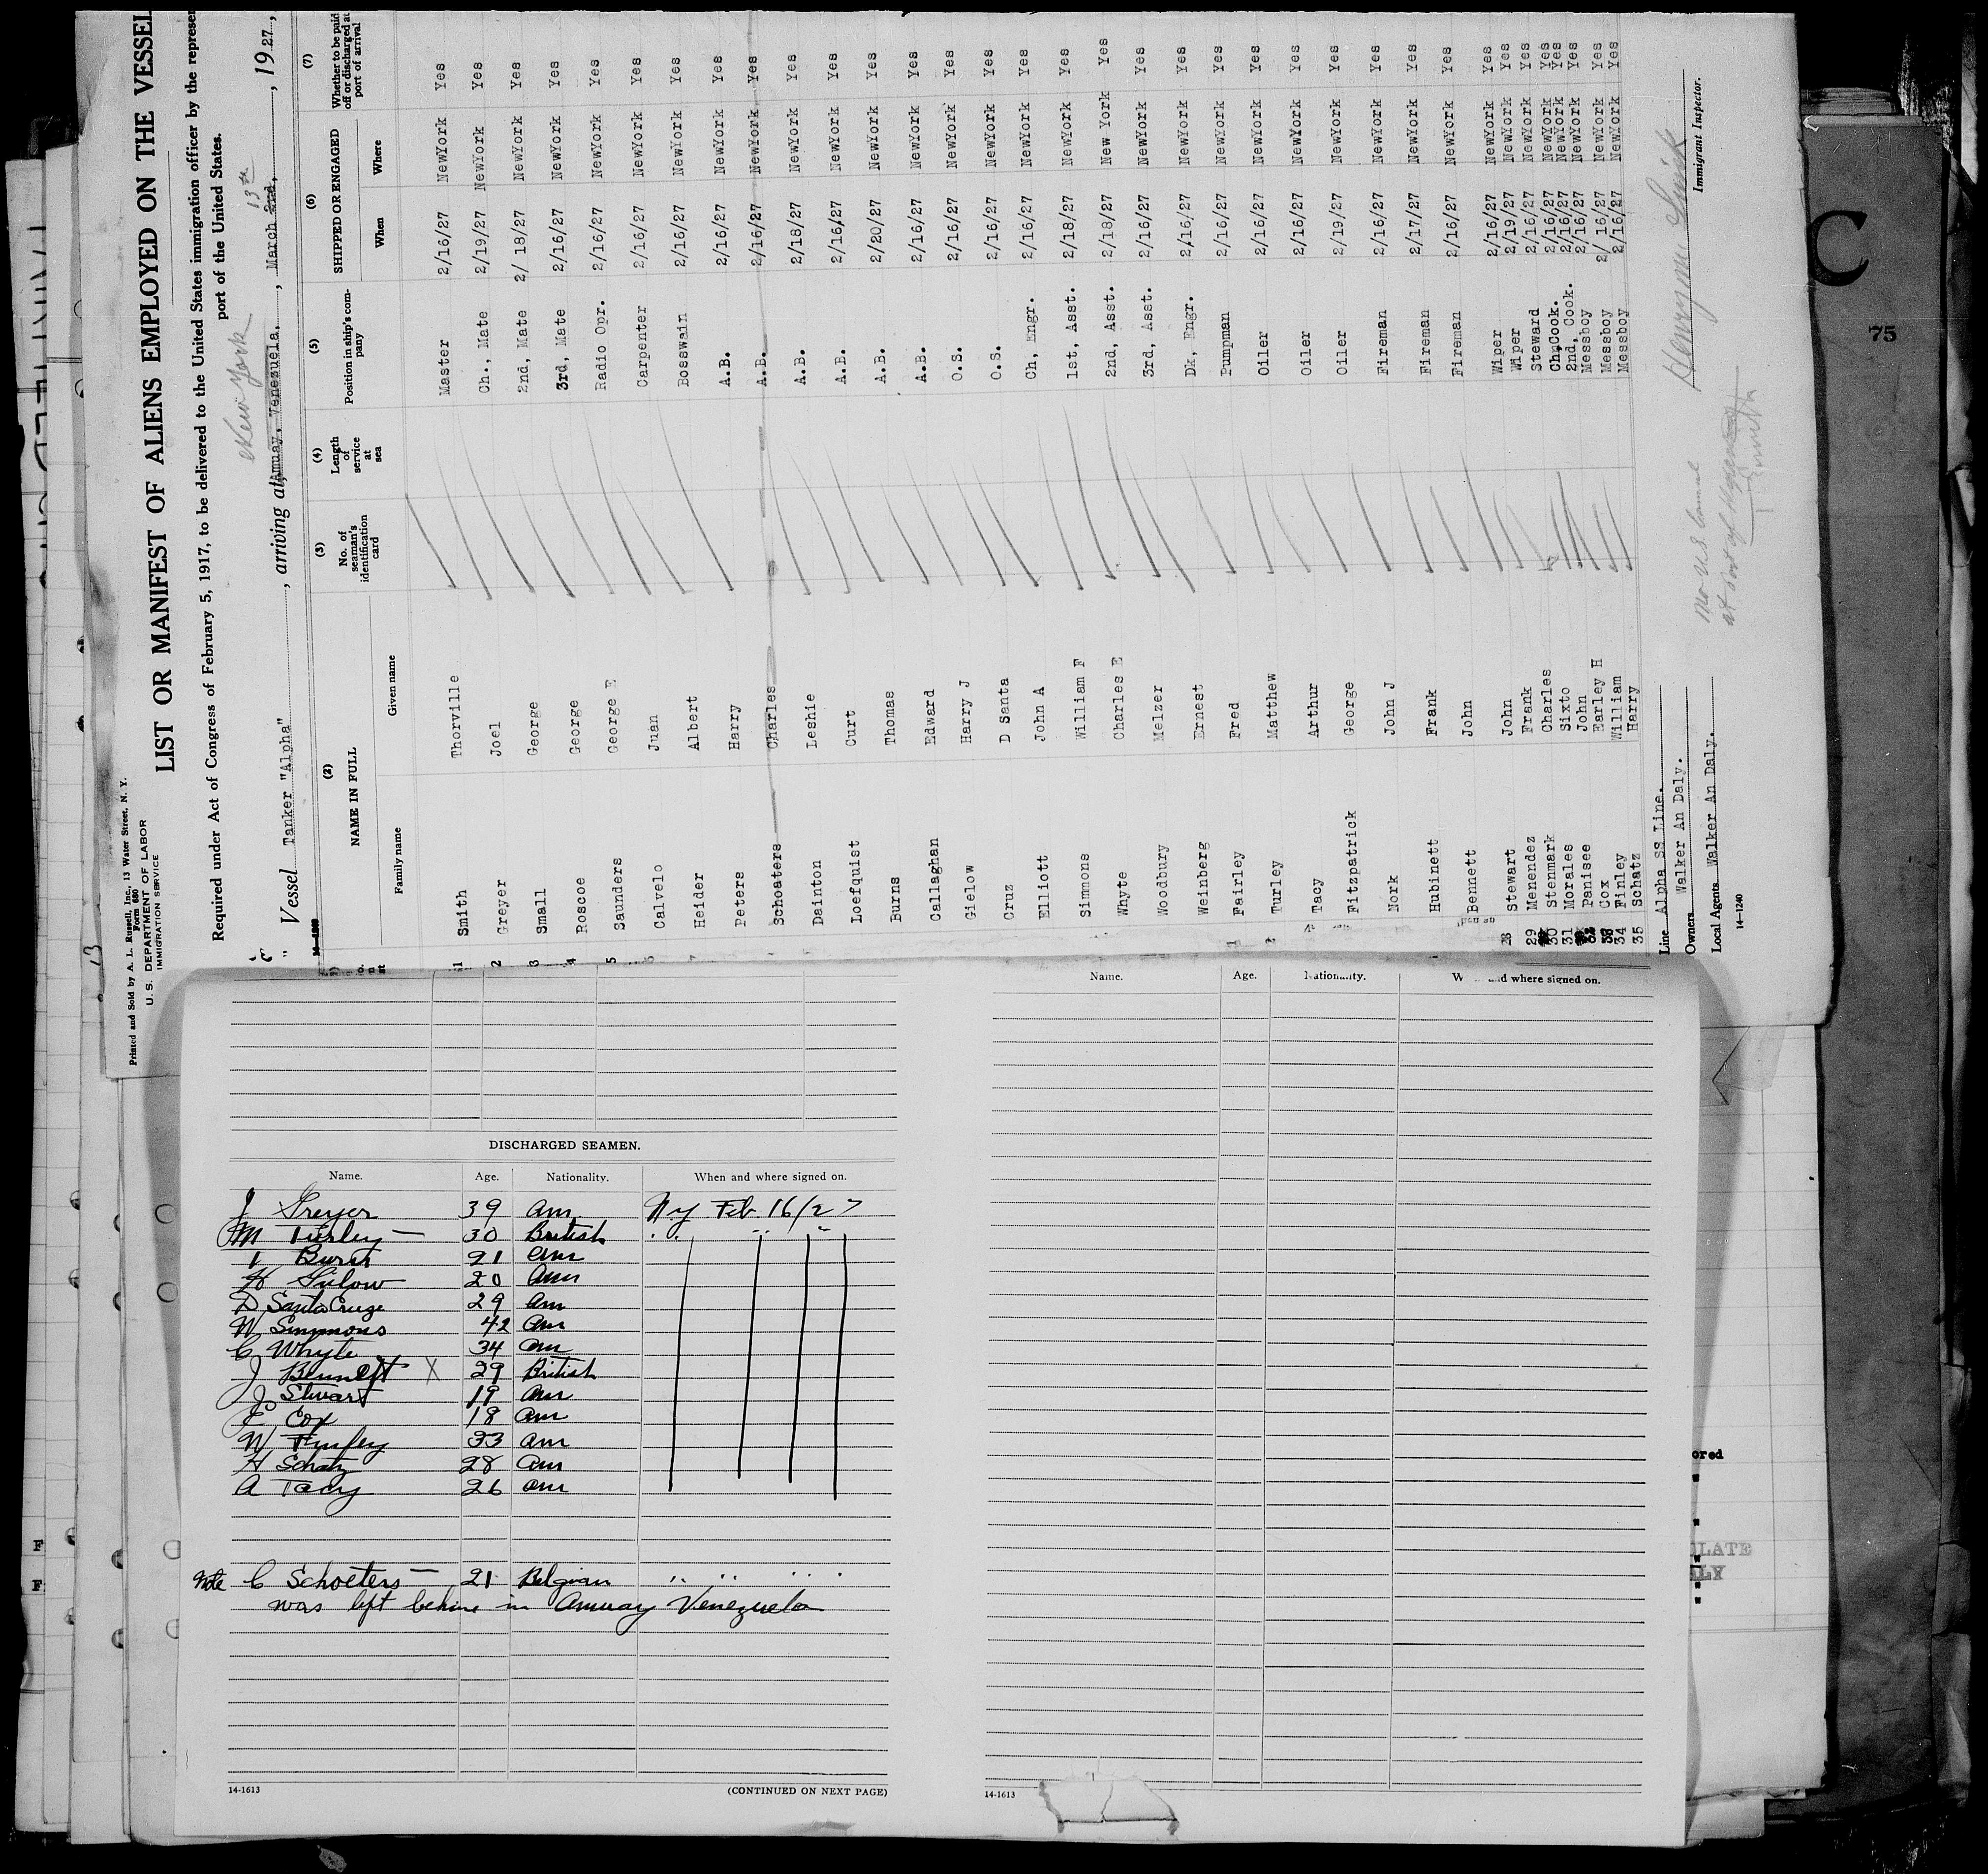 Printed and Sold by A. L. Russell, Inc., 13 Water Street, N. Y.
Form 680
U. S. DEPARTMENT OF LABOR
IMMIGRATION SERVICE
13
LIST OR MANIFEST OF ALIENS EMPLOYED ON THE VESSEL
Required under Act of Congress of February 5, 1917, to be delivered to the United States immigration officer by the represen
port of the United States.
New York 13th
Vessel Tanker "Alpha", arriving at Amuay, Venezuela, March 2nd, 1927,
(2) NAME IN FULL (3) No. of seaman's identification card (4) Length of service at sea (5) Position in ship's company (6) SHIPPED OR ENGAGED (7) Whether to be paid off or discharged at port of arrival
Family name Given name When Where
1 Smith Thorville Master 2/16/27 NewYork Yes
2 Greyer Joel Ch., Mate 2/19/27 NewYork Yes
3 Small George 2nd, Mate 2/ 18/27 NewYork Yes
4 Roscoe George 3rd, Mate 2/16/27 NewYork Yes
5 Saunders George E Radio Opr. 2/16/27 NewYork Yes
6 Calvelo Juan Carpenter 2/16/27 NewYork Yes
Heider Albert Bosswain 2/16/27 NewYork Yes
Peters Hary A.B. 2/16/27 NewYork Yes
Schoaters Charles A.B. 2/16/27 NewYork Yes
Dainton Leshie A.B. 2/18/27 NewYork Yes
Loefquist Curt A.B. 2/16/27 NewYork Yes
Burns Thomas A.B. 2/20/27 NewYork Yes
Callaghan Edward A.B. 2/16/27 NewYork Yes
Gielow Harry J O.S. 2/16/27 NewYork Yes
Cruz D Santa O.S. 2/16/27 NewYork Yes
Elliott John A Ch, Engr. 2/16/27 NewYork Yes
Simmons William F 1st, Asst. 2/18/27 NewYork Yes
Whyte Charles E 2nd, Asst. 2/18/27 New York Yes
Woodbury Melzer 3rd, Asst. 2/16/27 NewYork Yes
Weinberg Ernest Dk, Engr. 2/16/27 NewYork Yes
Fairley Fred Pumpman 2/16/27 NewYork Yes
Turley Matthew Oiler 2/16/27 NewYork Yes
Tacy Arthur Oiler 2/16/27 NewYork Yes
Fitzpatrick George Oiler 2/19/27 NewYork Yes
Nork John J Fireman 2/16/27 NewYork Yes
Hubinett Frank Fireman 2/17/27 NewYork Yes
Bennett John Fireman 2/16/27 NewYork Yes
28 Stewart John Wiper 2/16/27 NewYork Yes
29 Menendez Frank Wiper 2/19/27 NewYork Yes
30 Stenmark Charles Steward 2/16/27 NewYork Yes
31 Morales Sixto Ch,Cook. 2/16/27 NewYork Yes
Panisee John 2nd, Cook. 2/16/27 NewYork Yes
Cox Earley H Messboy 2/16/27 NewYork Yes
34 Finley William Messboy 2/ 16/27 NewYork Yes
35 Schatz Harry Messboy 2/16/27 NewYork Yes
Line Alpha SS Line.
Owners Walker An Daly.
Local Agents Walker An Daly.
Immigrant Inspector.
14—1240
C
75
Name. Age. Nationality. and where signed on.
DISCHARGED SEAMEN.
Name. Age. Nationality. When and where signed on.
J Greyer 39 Am N y Feb 16/27
M Turley — 30 British " " "
T Burns 21 Am
H Gielow 20 Am
D Santa Cruze 29 Am
W Simmons 42 Am
C Whyte 34 Am
J Bennett X 29 British
J Stewart 19 Am
E Cox 18 Am
W Finley 33 Am
H Schatz 28 Am
A Tacy 26 Am
Note C Schoeters — 21 Belgian " " " "
was left behind in Amuay Venezuela
14-1613
(CONTINUED ON NEXT PAGE)
14-1613
ored
F
F